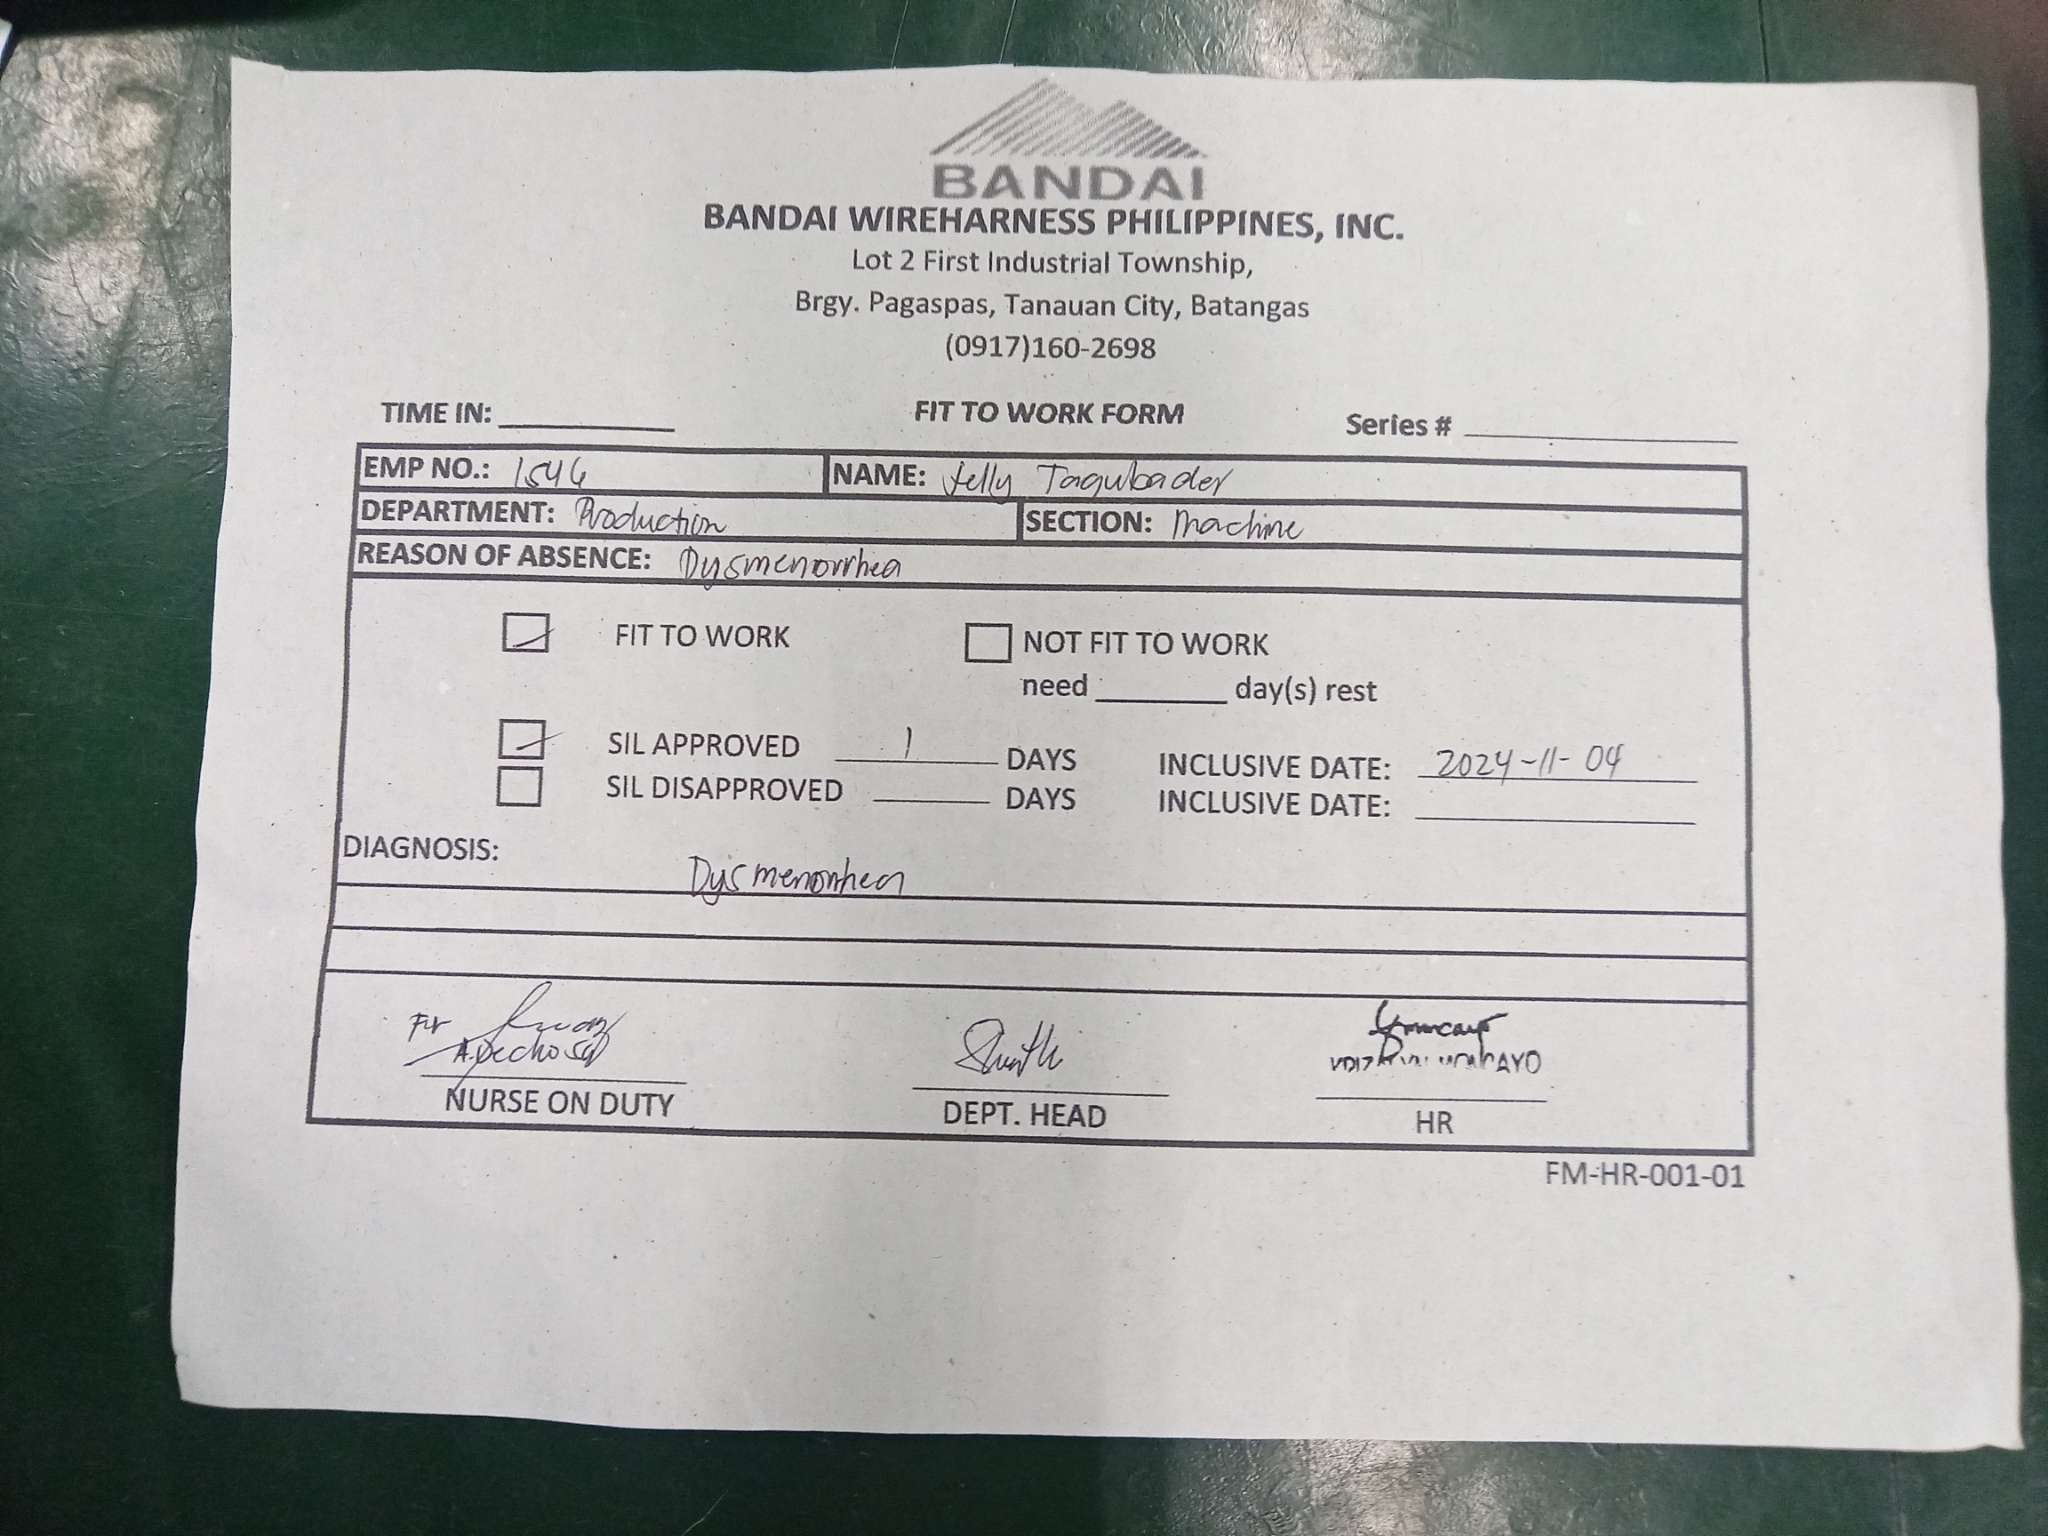 BANDAI
BANDAI WIREHARNESS PHILIPPINES, INC.
Lot 2 First Industrial Township,
Brgy. Pagaspas, Tanauan City, Batangas
(0917)160-2698
TIME IN: FIT TO WORK FORM Series #
EMP NO.: 1546 NAME: Jelly Tagubader
DEPARTMENT: Production SECTION: Machine
REASON OF ABSENCE: Dysmenorrhea
FIT TO WORK NOT FIT TO WORK
need day(s) rest
SIL APPROVED 1 DAYS INCLUSIVE DATE: 2024-11-04
SIL DISAPPROVED DAYS INCLUSIVE DATE:
DIAGNOSIS:
Dysmenorrhea
For
NURSE ON DUTY DEPT. HEAD HR
FM-HR-001-01